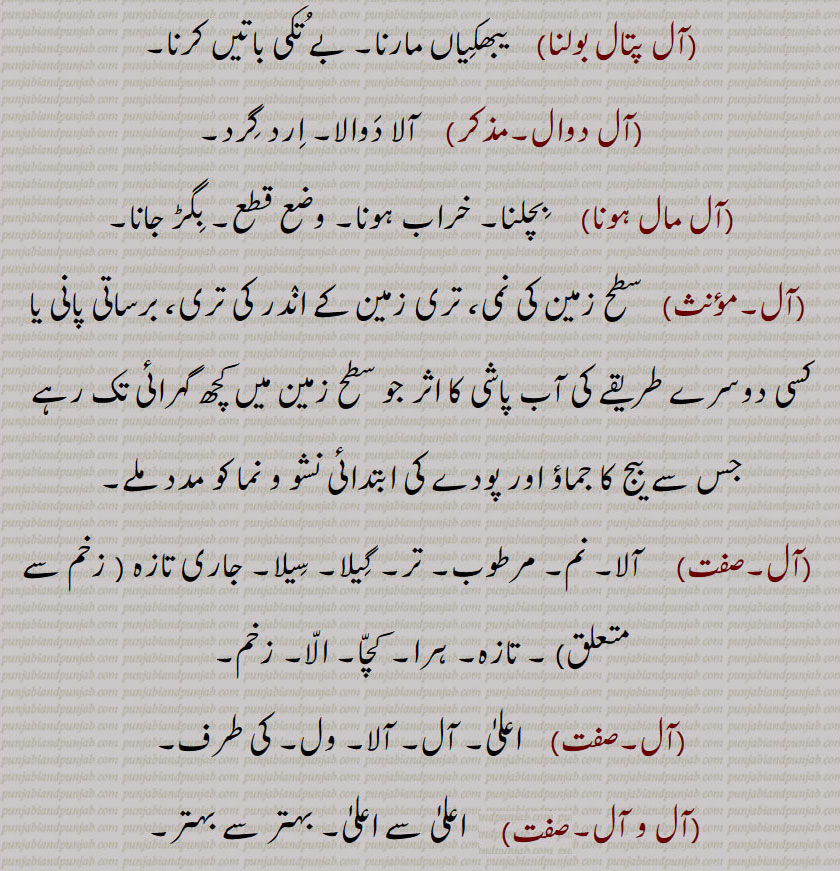 (آل پتال بولنا) یبھکِیاں مارنا۔ بے تُکی باتیں کرنا۔
(آل دوال۔مذکر) آلا دَوالا۔ اِرد گِرد۔
(آل مال ہونا) بِچلنا۔ خراب ہونا۔ وضع قطع۔ بِگڑ جانا۔
(آل۔مؤنث) سطح زمین کی نمی، تری زمین کے انْدر کی تری، برساتی پانی یا
کسی دوسرے طریقے کی آب پاشی کا اثر جو سطح زمین میں کچھ گہرائی تک رہے
جس سے بیج کا جماؤ اور پودے کی ابتدائی نشو و نما کو مدد ملے۔
(آل۔صفت) آلا۔ نم۔ مرطوب۔ تر۔ گِیلا۔ سِیلا۔ جاری تازہ ( زخم سے
متعلق) ۔ تازہ۔ ہرا۔ کچّا۔ الّا۔ زخم۔
(آل۔صفت) اعلیٰ۔ آل۔ آلا۔ ول۔ کی طرف۔
(آل و آل۔صفت) اعلیٰ سے اعلیٰ۔ بہتر سے بہتر۔